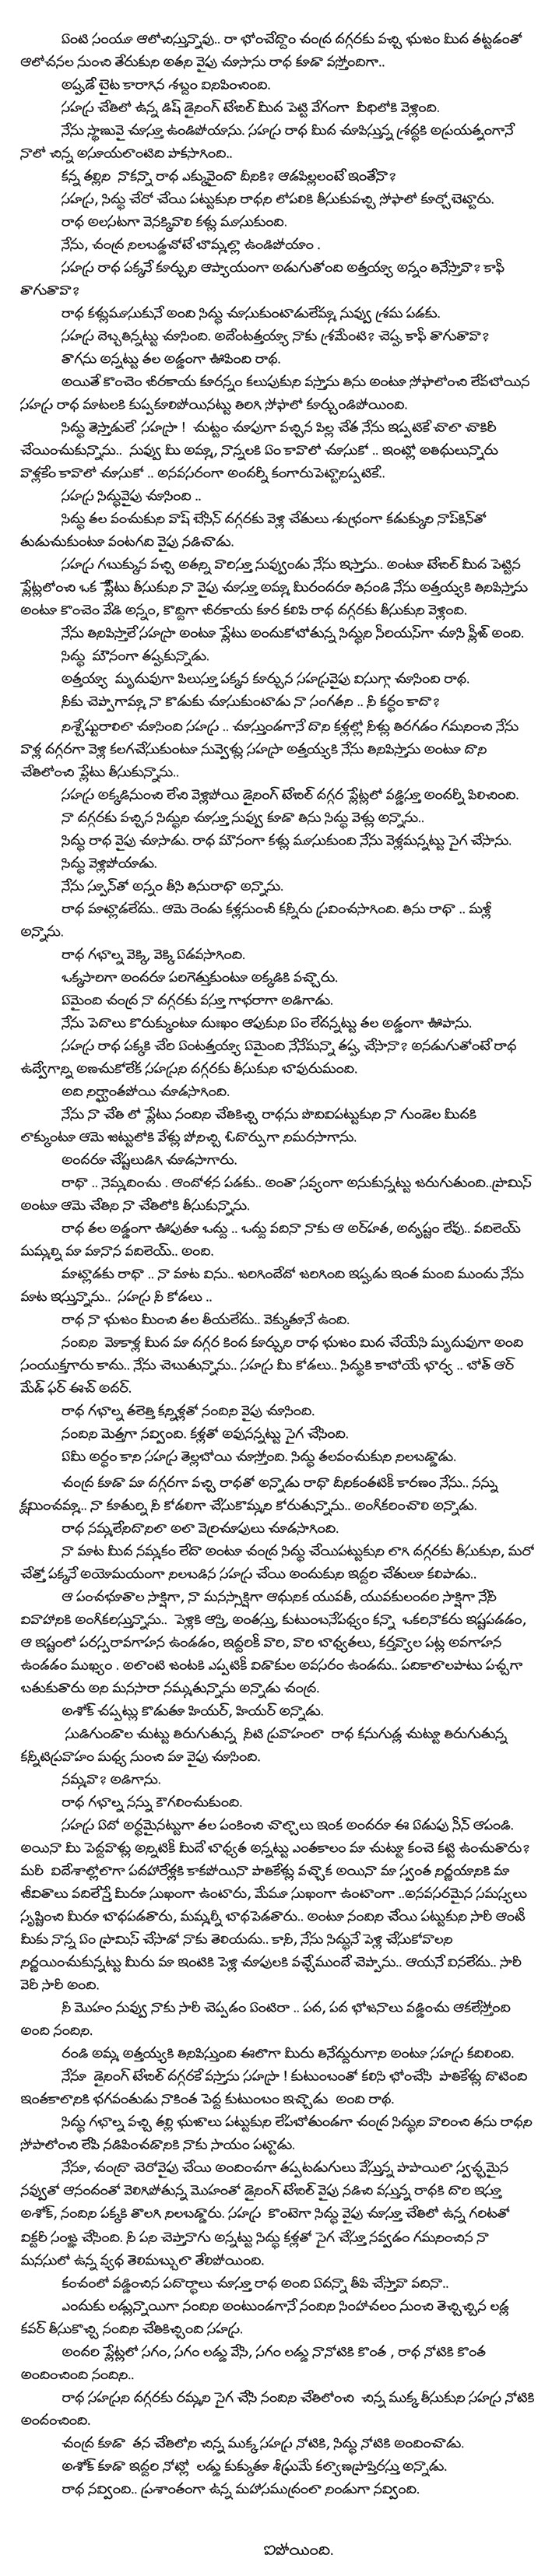 ఏంటి సంయూ ఆలోచిస్తున్నావు.. రా భోంచేద్దాం చంద్ర దగ్గరకు వచ్చి భుజం మీద తట్టడంతో
ఆలోచనల నుంచి తేరుకుని అతని వైపు చూసాను రాధ కూడా వస్తోందిగా..
అప్పడే బైట కారాగిన శబ్దం వినిపించింది.
సహస్ర చేతిలో ఉన్న డిష్ డైనింగ్ టేబిల్ మీద పెట్టి వేగంగా వీధిలోకి వెళ్లింది.
నేను స్థాణువై చూస్తూ ఉండిపోయాను. సహస్ర రాధ మీద చూపిస్తున్న శ్రద్ధకి అప్రయత్నంగానే
నాలో చిన్న అసూయలాంటిది పాకసాగింది..
కన్న తల్లిని నాకన్నా రాధ ఎక్కువైందా దీనికి? ఆడపిల్లలంటే ఇంతేనా?
సహస్ర, సిద్ధు చేరో చేయి పట్టుకుని రాధని లోపలికి తీసుకువచ్చి సోఫాలో కూర్చోబెట్టారు.
రాధ అలసటగా వెనక్కివాలి కళ్లు మూసుకుంది.
నేను, చంద్ర నిలబడ్డచోటే బొమ్మల్లా ఉండిపోయాం .
సహస్ర రాధ పక్కనే కూర్చుని ఆప్యాయంగా అడుగుతోంది అత్తయ్యా అన్నం తినేస్తావా? కాఫీ
తాగుతావా?
రాధ కళ్లుమూసుకునే అంది సిద్ధు చూసుకుంటాడులేమ్మా నువ్వు శ్రమ పడకు.
సహస్ర దెబ్బతిన్నట్టు చూసింది. అదేంటత్తయ్యా నాకు శ్రమేంటి? చెప్పు కాఫీ తాగుతావా?
తాగను అన్నట్టు తల అడ్డంగా ఊపింది రాధ.
అయితే కొంచెం బీరకాయ కూరన్నం కలుపుకుని వస్తాను తిను అంటూ సోఫాలోంచి లేవబోయిన
సహస్ర రాధ మాటలకి కుప్పకూలిపోయినట్టు తిరిగి సోఫాలో కూర్చుండిపోయింది.
సిద్ధు తెస్తాడులే సహస్రా ! చుట్టం చూపుగా వచ్చిన పిల్ల చేత నేను ఇప్పటికే చాలా చాకిరీ
చేయించుకున్నాను.. నువ్వు మీ అమ్మా, నాన్నలకి ఏం కావాలో చూసుకో .. ఇంట్లో అతిధులున్నారు
వాళ్లకేం కావాలో చూసుకో .. అనవసరంగా అందర్నీ కంగారుపెట్టానిప్పటికే..
సహస్ర సిద్ధువైపు చూసింది ..
సిద్ధు తల వంచుకుని వాష్ బేసిన్ దగ్గరకు వెళ్లి చేతులు శుభ్రంగా కడుక్కుని నాప్‌కిన్‌తో
తుడుచుకుంటూ వంటగది వైపు నడిచాడు.
సహస్ర గబుక్కున వచ్చి అతన్ని వారిస్తూ నువ్వుండు నేను ఇస్తాను.. అంటూ టేబిల్ మీద పెట్టిన
ప్లేట్లలోంచి ఒక ప్లేటు తీసుకుని నా వైపు చూస్తూ అమ్మా మీరందరూ తినండి నేను అత్తయ్యకి తినిపిస్తాను
అంటూ కొంచెం వేడి అన్నం, కొద్దిగా బీరకాయ కూర కలిపి రాధ దగ్గరకు తీసుకుని వెళ్లింది.
నేను తినిపిస్తాలే సహస్రా అంటూ ప్లేటు అందుకోబోతున్న సిద్ధుని సీరియస్‌గా చూసి ప్లీజ్ అంది.
సిద్ధు మౌనంగా తప్పుకున్నాడు.
అత్తయ్యా మృదువుగా పిలుస్తూ పక్కన కూర్చున సహస్రవైపు విసుగ్గా చూసింది రాధ.
నీకు చెప్పాగామ్మా నా కొడుకు చూసుకుంటాడు నా సంగతని .. నీ కర్ధం కాదా?
నిశ్చేష్టురాలిలా చూసింది సహస్ర .. చూస్తుండగానే దాని కళ్లల్లో నీళ్లు తిరగడం గమనించి నేను
వాళ్ల దగ్గరగా వెళ్లి కలగచేసుకుంటూ నువ్వెళ్లు సహస్రా అత్తయ్యకి నేను తినిపిస్తాను అంటూ దాని
చేతిలోంచి ప్లేటు తీసుకున్నాను..
సహస్ర అక్కడినుంచి లేచి వెళ్లిపోయి డైనింగ్ టేబిల్ దగ్గర ప్లేట్లలో వడ్డిస్తూ అందర్నీ పిలిచింది.
నా దగ్గరకు వచ్చిన సిద్ధుని చూస్తూ నువ్వు కూడా తిను సిద్ధు వెళ్లు అన్నాను..
సిద్ధు రాధ వైపు చూసాడు. రాధ మౌనంగా కళ్లు మూసుకుంది నేను వెళ్లమన్నట్టు సైగ చేసాను.
సిద్ధు వెళ్లిపోయాడు.
నేను స్పూన్‌తో అన్నం తీసి తినురాధా అన్నాను.
రాధ మాట్లాడలేదు.. ఆమె రెండు కళ్లనుంచీ కన్నీరు స్రవించసాగింది. తిను రాధా .. మళ్లీ
అన్నాను.
రాధ గభాల్న వెక్కి, వెక్కి ఏడవసాగింది.
ఒక్కసారిగా అందరూ పరిగెత్తుకుంటూ అక్కడికి వచ్చారు.
ఏమైంది చంద్ర నా దగ్గరకు వస్తూ గాభరాగా అడిగాడు.
నేను పెదాలు కొరుక్కుంటూ దుఃఖం ఆపుకుని ఏం లేదన్నట్టు తల అడ్డంగా ఊపాను.
సహస్ర రాధ పక్కకి చేరి ఏంటత్తయ్యా ఏమైంది నేనేమన్నా తప్పు చేసానా? అనడుగుతోంటే రాధ
ఉద్వేగాన్ని అణచుకోలేక సహస్రని దగ్గరకు తీసుకుని బావురుమంది.
అది నిర్ఘాంతపోయి చూడసాగింది.
నేను నా చేతి లో ప్లేటు నందిని చేతికిచ్చి రాధను పొదివిపట్టుకుని నా గుండెల మీదకి
లాక్కుంటూ ఆమె జుట్టులోకి వేళ్లు పోనిచ్చి ఓదార్పుగా నిమరసాగాను.
అందరూ చేష్టలుడిగి చూడసాగారు.
రాధా .. నెమ్మదించు . ఆందోళన పడకు.. అంతా సవ్యంగా అనుకున్నట్టు జరుగుతుంది..ప్రామిస్
అంటూ ఆమె చేతిని నా చేతిలోకి తీసుకున్నాను.
రాధ తల అడ్డంగా ఊపుతూ ఒద్దు .. ఒద్దు వదినా నాకు ఆ అర్హత, అదృష్టం లేవు.. వదిలెయ్
మమ్మల్ని మా మానాన వదిలెయ్.. అంది.
మాట్లాడకు రాధా .. నా మాట విను.. జరిగిందేదో జరిగింది ఇప్పడు ఇంత మంది ముందు నేను
మాట ఇస్తున్నాను.. సహస్ర నీ కోడలు ..
రాధ నా భుజం మీంచి తల తీయలేదు.. వెక్కుతూనే ఉంది.
నందిని మోకాళ్ల మీద మా దగ్గర కింద కూర్చుని రాధ భుజం మిద చేయేసి మృదువుగా అంది
సంయుక్తగారు కాదు.. నేను చెబుతున్నాను.. సహస్ర మీ కోడలు.. సిద్ధుకి కాబోయే భార్య .. బోత్ ఆర్
మేడ్ ఫర్ ఈచ్ అదర్.
రాధ గభాల్న తలెత్తి కన్నీళ్లతో నందిని వైపు చూసింది.
నందిని మెత్తగా నవ్వింది. కళ్లతో అవునన్నట్టు సైగ చేసింది.
ఏమీ అర్ధం కాని సహస్ర తెల్లబోయి చూస్తోంది. సిద్ధు తలవంచుకుని నిలబడ్డాడు.
చంద్ర కూడా మా దగ్గరగా వచ్చి రాధతో అన్నాడు రాధా దీనికంతటికీ కారణం నేను.. నన్ను
క్షమించమ్మా.. నా కూతుర్ని నీ కోడలిగా చేసుకొమ్మని కోరుతున్నాను.. అంగీకరించాలి అన్నాడు.
రాధ నమ్మలేనిదానిలా అలా వెర్రిచూపులు చూడసాగింది.
నా మాట మీద నమ్మకం లేదా అంటూ చంద్ర సిద్ధు చేయిపట్టుకుని లాగి దగ్గరకు తీసుకుని, మరో
చేత్తో పక్కనే అయోమయంగా నిలబడిన సహస్ర చేయి అందుకుని ఇద్దరి చేతులూ కలిపాడు..
ఆ పంచభూతాల సాక్షిగా, నా మనస్సాక్షిగా ఆధునిక యువతీ, యువకులందరి సాక్షిగా నేనీ
వివాహానికి అంగీకరిస్తున్నాను.. పెళ్లికి ఆస్తి, అంతస్తు, కుటుంబనేపధ్యం కన్నా ఒకరినొకరు ఇష్టపడడం,
ఆ ఇష్టంలో పరస్పరావగాహన ఉండడం, ఇద్దరికీ వారి, వారి బాధ్యతలు, కర్తవ్యాల పట్ల అవగాహన
ఉండడం ముఖ్యం . అలాంటి జంటకి ఎప్పటికీ విడాకుల అవసరం ఉండదు.. పదికాలాలపాటు పచ్చగా
బతుకుతారు అని మనసారా నమ్ముతున్నాను అన్నాడు చంద్ర.
అశోక్ చప్పట్లు కొడుతూ హియర్, హియర్ అన్నాడు.
సుడిగుండాల చుట్టు తిరుగుతున్న నీటి ప్రవాహంలా రాధ కనుగుడ్ల చుట్టూ తిరుగుతున్న
కన్నీటిప్రవాహం మధ్య నుంచి మా వైపు చూసింది.
నమ్మవా? అడిగాను.
రాధ గభాల్న నన్ను కౌగలించుకుంది.
సహస్ర ఏదో అర్ధమైనట్టుగా తల పంకించి చాల్చాలు ఇంక అందరూ ఈ ఏడుపు సీన్ ఆపండి.
అయినా మీ పెద్దవాళ్లు అన్నిటికీ మీదే బాధ్యత అన్నట్టు ఎంతకాలం మా చుట్టూ కంచె కట్టి ఉంచుతారు?
మరీ విదేశాల్లోలాగా పదహారేళ్లకి కాకపోయినా పాతికేళ్లు వచ్చాక అయినా మా స్వంత నిర్ణయానికి మా
జీవితాలు వదిలేస్తే మీరూ సుఖంగా ఉంటారు, మేమూ సుఖంగా ఉంటాంగా ..అనవసరమైన సమస్యలు
సృష్టించి మీరూ బాధపడతారు, మమ్మల్నీ బాధపెడతారు.. అంటూ నందిని చేయి పట్టుకుని సారీ ఆంటీ
మీకు నాన్న ఏం ప్రామిస్ చేసాడో నాకు తెలియదు.. కానీ, నేను సిద్ధునే పెళ్లి చేసుకోవాలని
నిర్ణయించుకున్నట్టు మీరు మా ఇంటికి పెళ్లి చూపులకి వచ్చేముందే చెప్పాను.. ఆయనే వినలేదు.. సారీ
వెరీ సారీ అంది.
నీ మొహం నువ్వు నాకు సారీ చెప్పడం ఏంటిరా .. పద, పద భోజనాలు వడ్డించు ఆకలేస్తోంది
అంది నందిని.
రండి అమ్మ అత్తయ్యకి తినిపిస్తుంది ఈలోగా మీరు తినేద్దురుగాని అంటూ సహస్ర కదిలింది.
నేనూ డైనింగ్ టేబిల్ దగ్గరకే వస్తాను సహస్రా ! కుటుంబంతో కలిసి భోంచేసి పాతికేళ్లు దాటింది
ఇంతకాలానికి భగవంతుడు నాకింత పెద్ద కుటుంబం ఇచ్చాడు అంది రాధ.
సిద్ధు గభాల్న వచ్చి తల్లి భుజాలు పట్టుకుని లేపబోతుండగా చంద్ర సిద్ధుని వారించి తను రాధని
సోపాలోంచి లేపి నడిపించడానికి నాకు సాయం పట్టాడు.
నేనూ, చంద్రా చెరోవైపు చేయి అందించగా తప్పటడుగులు వేస్తున్న పాపాయిలా స్వచ్ఛమైన
నవ్వుతో ఆనందంతో వెలిగిపోతున్న మొహంతో డైనింగ్ టేబిల్ వైపు నడిచి వస్తున్న రాధకి దారి ఇస్తూ
అశోక్, నందిని పక్కకి తొలగి నిలబడ్డారు. సహస్ర కొంటెగా సిద్ధు వైపు చూస్తూ చేతిలో ఉన్న గరిటతో
విక్టరీ సంజ్ఞ చేసింది. నీ పని చెప్తానాగు అన్నట్టు సిద్ధు కళ్లతో సైగ చేస్తూ నవ్వడం గమనించిన నా
మనసులో ఉన్న వ్యధ తెలిమబ్బులా తేలిపోయింది.
కంచంలో వడ్డించిన పదార్ధాలు చూస్తూ రాధ అంది ఏదన్నా తీపి చేస్తావా వదినా..
ఎందుకు లడ్లున్నాయిగా నందిని అంటుండగానే నందిని సింహాచలం నుంచి తెచ్చిచ్చిన లడ్ల
కవర్ తీసుకొచ్చి నందిని చేతికిచ్చింది సహస్ర.
అందరి ప్లేట్లలో సగం, సగం లడ్డు వేసి, సగం లడ్డు నానోటికి కొంత , రాధ నోటికి కొంత
అందించింది నందిని..
రాధ సహస్రని దగ్గరకు రమ్మని సైగ చేసి నందిని చేతిలోంచి చిన్న ముక్క తీసుకుని సహస్ర నోటికి
అందించింది.
చంద్ర కూడా తన చేతిలోని చిన్న ముక్క సహస్ర నోటికి, సిద్ధు నోటికి అందించాడు.
అశోక్ కూడా ఇద్దరి నోట్లో లడ్డు కుక్కుతూ శీఘ్రమే కల్యాణప్రాప్తిరస్తు అన్నాడు.
రాధ నవ్వింది.. ప్రశాంతంగా ఉన్న మహాసముద్రంలా నిండుగా నవ్వింది.
ఐపోయింది.